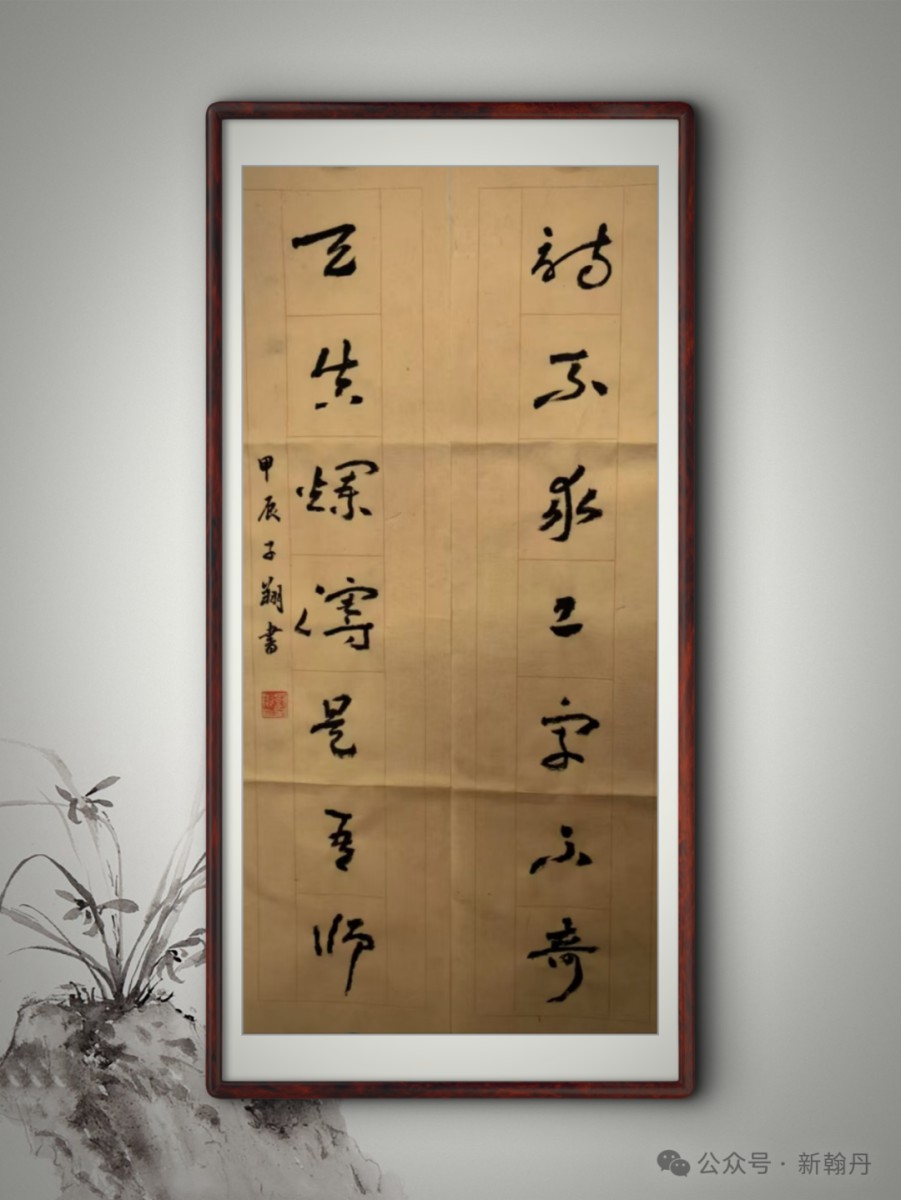 詩不求工字不奇
天真爛漫是吾師
甲辰子翔書
公众号·新翰丹